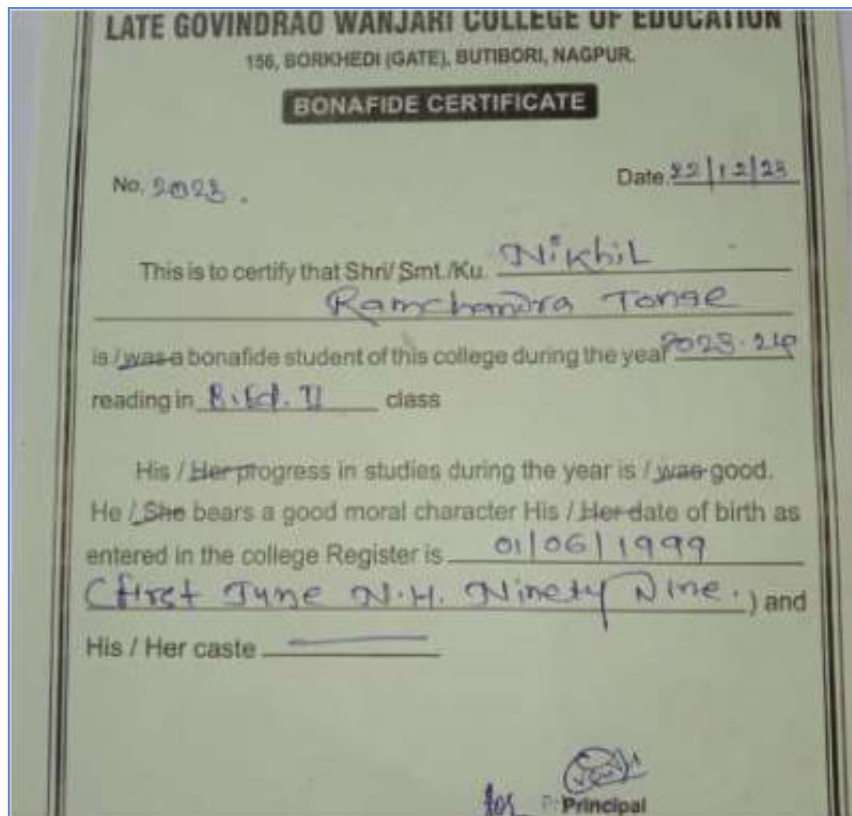 LATE GOVINDRAO WANJARI COLLEGE OF EDUCATION
156, BORKHEDI (GATE), BUTIBORI, NAGPUR.
BONAFIDE CERTIFICATE
No. 2023.
Date 22/12/23
This is to certify that Shri/ Smt./Ku. Nikhil
Ramchandra Tonge
is / was a bonafide student of this college during the year 2023-24
reading in B.Ed. II class
His / Her progress in studies during the year is / was good.
He / She bears a good moral character His / Her date of birth as
entered in the college Register is 01/06/1999
(first June N.H. Ninety Nine.) and
His / Her caste
for Principal